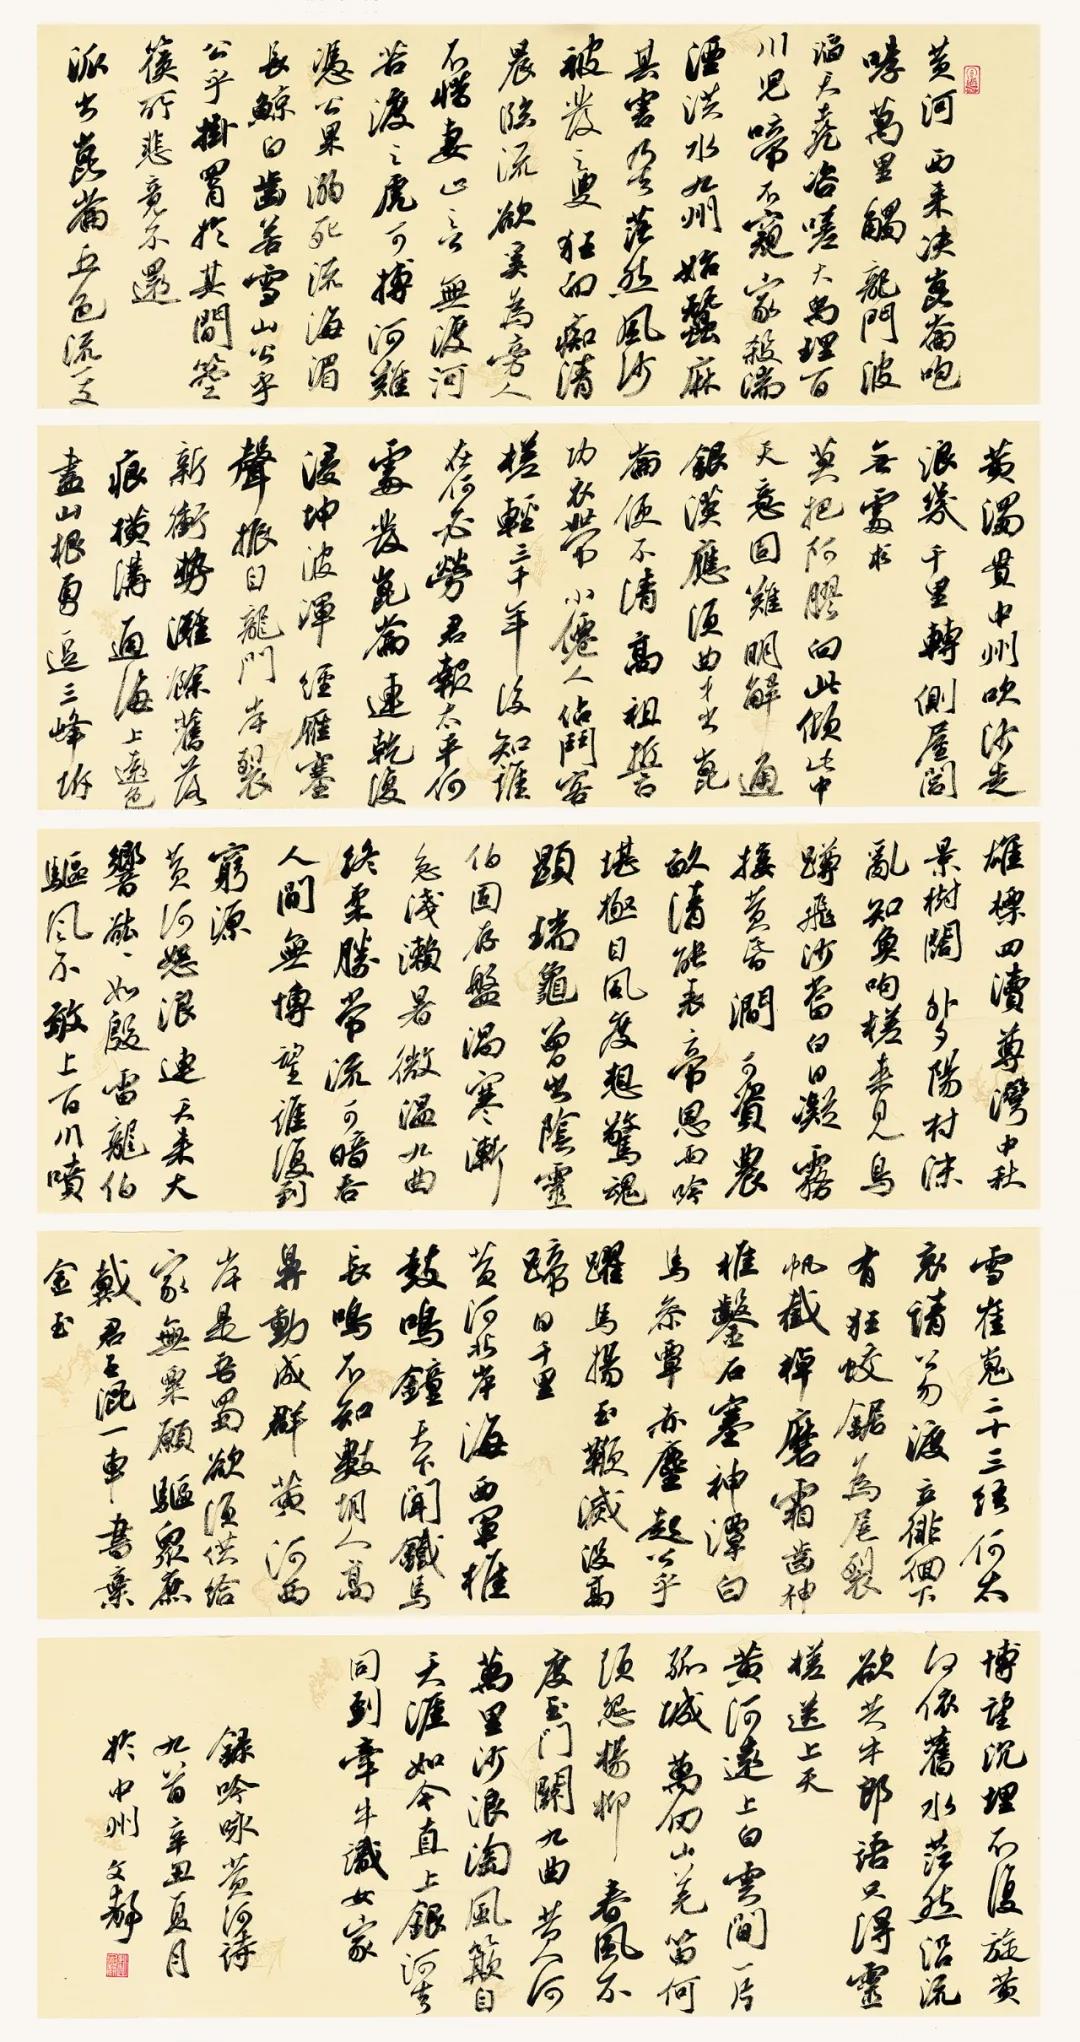 黄河西来决崑崙咆
哮萬里觸龍門波
滔天堯咨嗟大禹理百
川兒啼不窺家殺湍
湮洪水九州始蠶麻
其害乃去茫然風沙
被髮之叟狂而痴清
晨臨流欲奚為旁人
不惜妻止之無渡河
苦渡之虎可搏河難
憑公果溺死流海湄
長鯨白齒若雪山公乎
公乎掛罥於其間箜
篌所悲竟不還
派出崑崙五色流一支
黄濁貫中州吹沙走
浪幾千里轉側屋閭
無處求
莫把阿膠向此傾此中
天意固難明解通
銀漢應須曲才出崑
崙便不清高祖誓
功衣帶小僊人佔鬥客
槎輕三千年後知誰
在何必勞君報太平何
處發崑崙連乾復
浸坤波渾經雁塞
聲振自龍門岸裂
新衝勢灘餘舊落
痕橫溝通海上遠色
盡山根勇逗三峰坼
雄標四瀆尊灣中秋
景樹闊外夕陽村沫
亂知魚呴槎来見鳥
蹲飛沙當白日凝霧
接黄昏潤可資農
畝清能表帝恩雨吟
堪極目風度想驚魂
顯瑞龜曾出陰靈
伯固存盤渦寒漸
急淺瀨暑微温九曲
終柔勝常流可暗吞
人間無博望誰復到
窮源
黄河怒浪連天来大
響谹谹如殷雷龍伯
驅風不敢上百川噴
雪崔嵬二十三絃何太
哀請公勿渡立徘徊下
有狂蛟鋸為尾裂
帆截棹磨霜齒神
椎鑿石塞神潭白
馬参覃赤塵起公乎
躍馬揚玉鞭滅没高
蹄日千里
黄河北岸海西軍椎
鼓鳴鐘天下聞鐵馬
長鳴不知數胡人高
鼻動成群黄河西
岸是吾蜀欲須供給
家無粟願驅眾庶
戴君王混一車書棄
金玉
博望沉埋不復旋黄
河依舊水茫然沿流
欲共牛郎語只得靈
槎送上天
黄河遠上白雲間一片
孤城萬仞山羌笛何
須怨楊柳春風不
度玉門關九曲黄河
萬里沙浪淘風簸自
天涯如今直上銀河去
同到牽牛識女家
錄吟咏黄河詩
九首辛丑夏月
於中州文靜